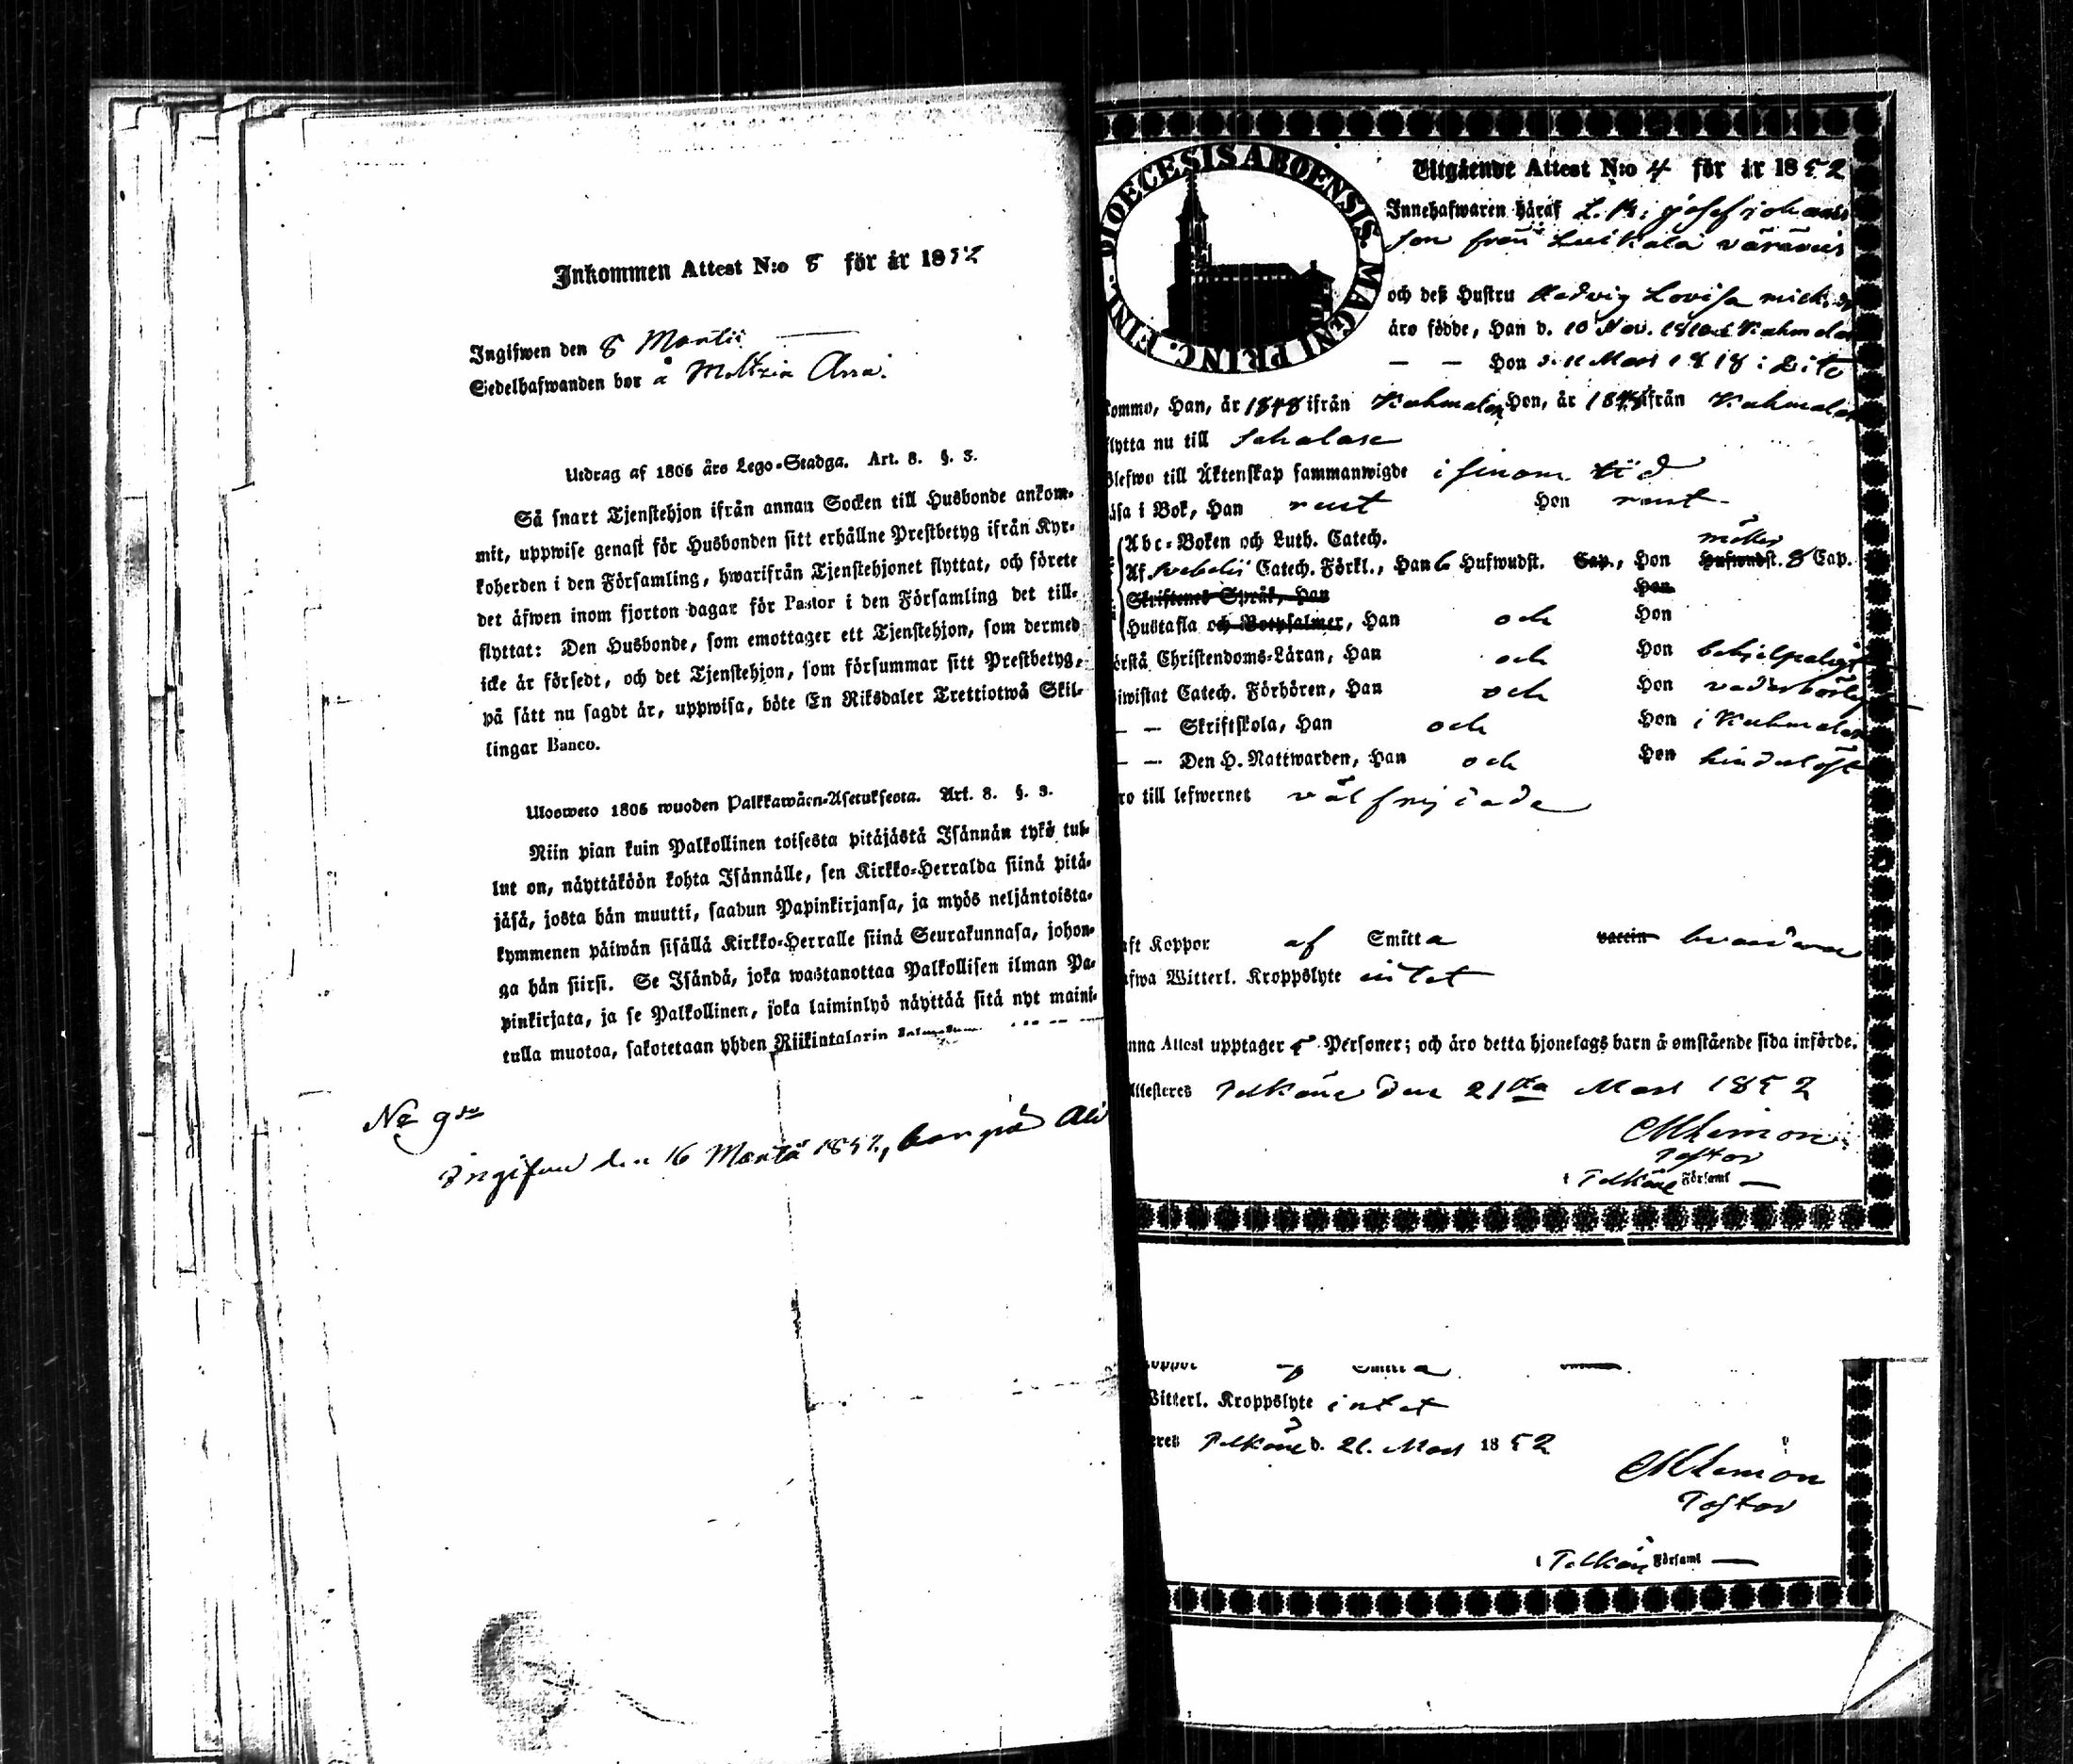 Inkommen Attest N:o 8 för år 1852
Ingifwen den 8 Martii
Sedelhafwanden bor å
Utdrag af 1805 års Lego-Stadga. Art. 8. §. 3.
Så snart Tjenstehjon ifrån annan Socken till Husbonde ankom-
mit, uppwise genast för Husbonden sitt erhållne Prestbetyg ifrån Kyr-
koherden i den Församling, hwarifrån Tjenstehjonet flyttat, och förete
det äfwen inom fjorton dagar för Pastor i den Församling det till-
flyttat: Den Husbonde, som emottager ett Tjenstehjon, som dermed
icke är försedt, och det Tjenstehjon, som försummar sitt Prestbetyg,
på sätt nu sagdt är, uppwisa, böte En Riksdaler Trettiotwå Skil-
lingar Banco.
Ulosweto 1805 wuoden Palkkawäen-Asetuksesta. Art. 8. §. 3.
Niin pian kuin Palkollinen toisesta pitäjästä Isännän tykö tul-
lut on, näyttäköön kohta Isännälle, sen Kirkko-Herralda siinä pitä-
jäsä, josta hän muutti, saadun Papinkirjansa, ja myös neljäntoista-
kymmenen päiwän sisällä Kirkko-Herralle siinä Seurakunnasa, johon-
ga hän siirsi. Se Isändä, joka wastanottaa Palkollisen ilman Pa-
pinkirjata, ja se Palkollinen, joka laiminlyö näyttää sitä nyt maini-
tulla muotoa, sakotetaan yhden Riikintalarin
No 9
Ingifwen den 16 Martii 1852, bor på
DIOECESIS ABOENSIS. MAGNI PRINC. FINL.
Utgående Attest N:o 4 för år 1852
Innehafwaren häraf Josef Johans
son från Luikala
och deß Hustru Hedvig Lovisa Mich.
äro födde, Han d. 10 Nov. 1810 i Kuhmalax
— — Hon d. 11 Mars 1818 i Dito
kommo, Han, år 1848 ifrån Kuhmalax Hon, år 1848 ifrån Kuhmalax
flytta nu till Sahalax
Blefwo till Äktenskap sammanwigde i sinom tid
läsa i Bok, Han rent Hon rent
Abc-Boken och Luth. Catech.
Af Svebelii Catech. Förkl., Han 6 Hufwudst. Cap., Hon Hufwudst. 8 Cap.
Skriftenes Språk, Han Hon
Hustafla och Botpsalmer, Han och Hon
förstå Christendoms-Läran, Han och Hon behjelpeligt
biwistat Catech. Förhören, Han och Hon vederbörlig
— — Skriftskola, Han och Hon i Kuhmalax
— — Den H. Nattwarden, Han och Hon hinderlöst
äro till lefwernet välfrejdade
haft Koppor af Smitta vaccin
hafwa Witterl. Kroppslyte intet
Denna Attest upptager 5 Personer; och äro detta hjonelags barn å omstående sida införde.
Attesteres Pelkäne den 21sta Mars 1852
Pastor
i Pelkäne Församl
Koppor af Smitta
Witterl. Kroppslyte intet
Pelkäne d. 21. Mars 1852
Pastor
i Pelkäne Församl